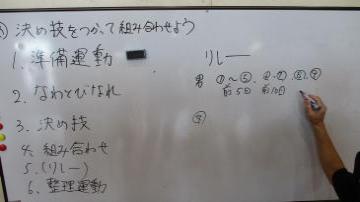 決め技をつかって組み合わせよう
1. 準備運動
2. なわとびなれ
3. 決め技
4. 組み合わせ
5. (リレー)
6. 整理運動
リレー
男 ①～⑤
前5回 前10回